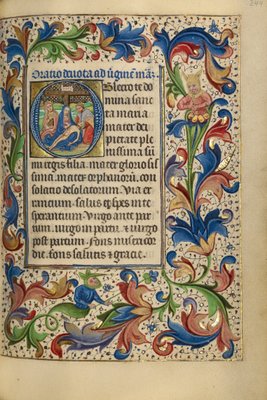 244
Oratio deuota ad uirginē ma:
Obsecro te do
mina sanc
ta maria
mater dei
pietate ple
nissima sū
mi regis filia. mater glorio sis
sima. mater orphanorū. con
solatio desolatorum. Via er
rantium. salus et spes in te
sperantium. Virgo ante par
tum. uirgo in partu. et uirgo
post partum. Fons misericor
die. fons salutis et gracie.